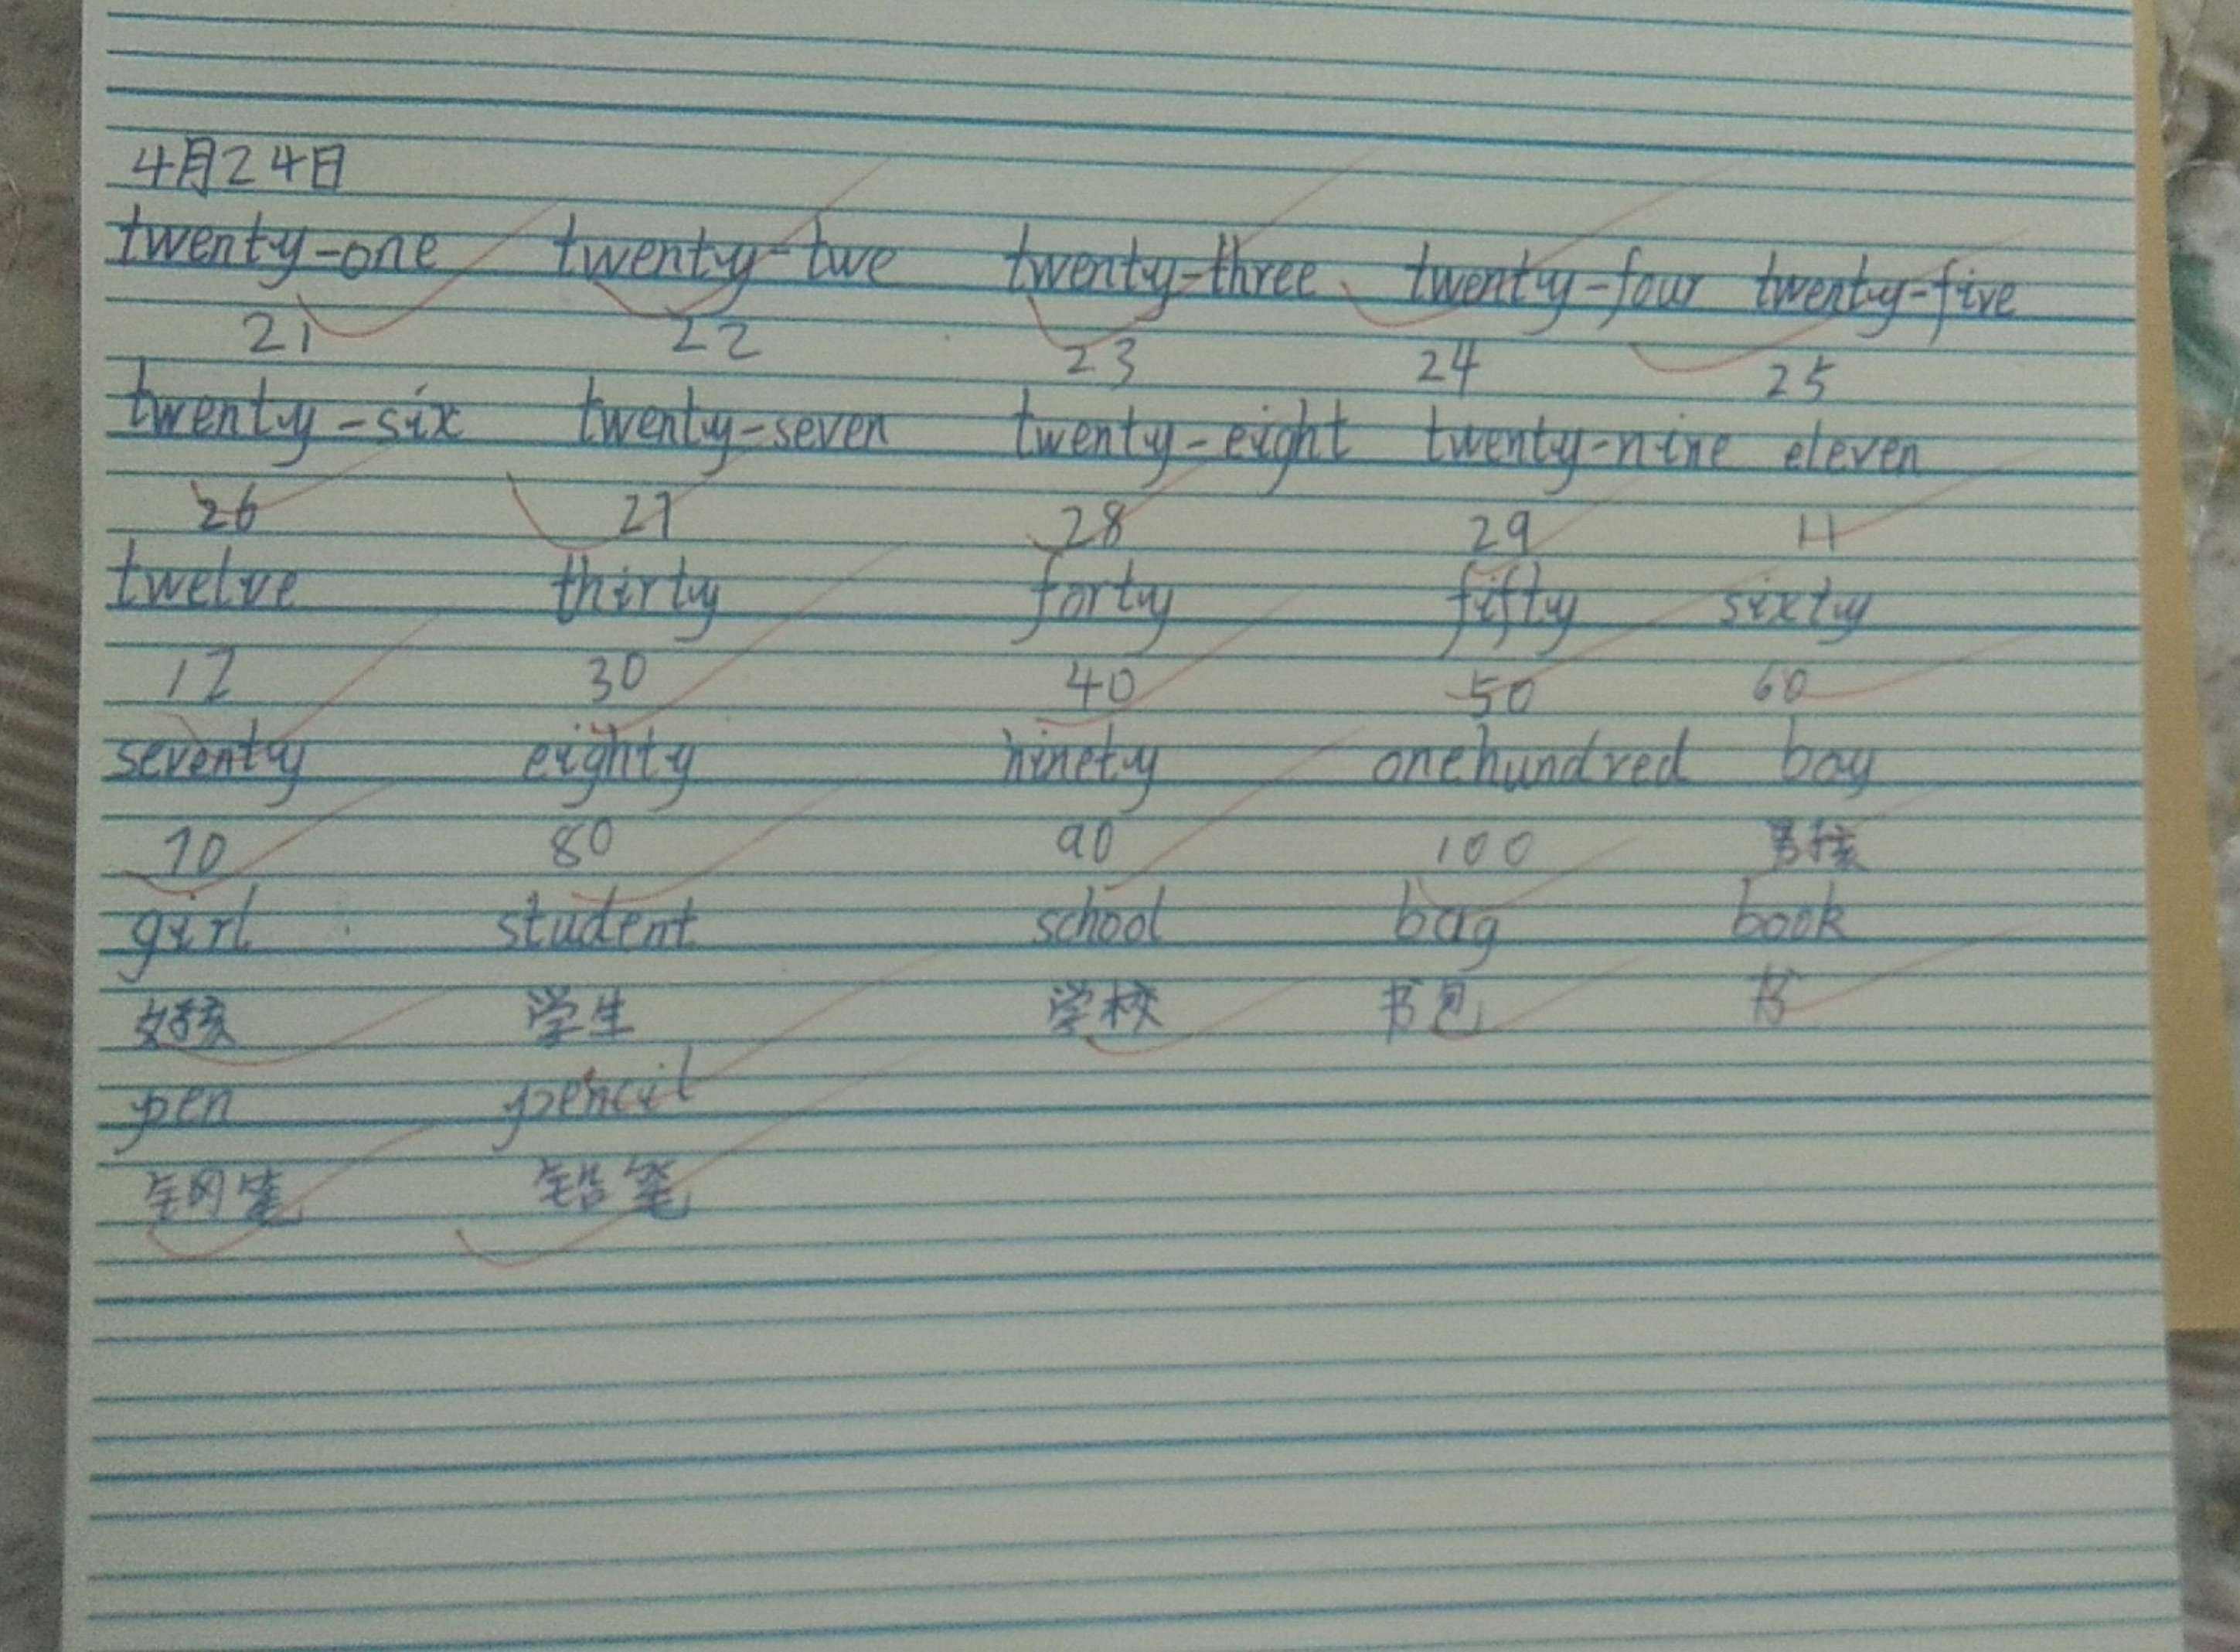 4月24日
twenty-one twenty-twe twenty-three twenty-four twenty-five
21 22 23 24 25
twenty-six twenty-seven twenty-eight twenty-nine eleven
26 27 28 29 11
twelve thirty forty fifty sixty
12 30 40 50 60
seventy eighty ninety onehundred boy
70 80 90 100 男孩
girl student school bag book
女孩 学生 学校 书包 书
pen pencil
钢笔 铅笔